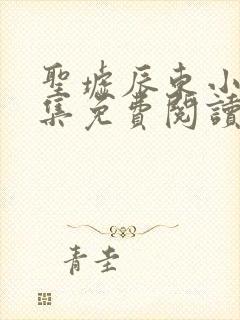 聖墟辰东小
集免費閱讀
青圭